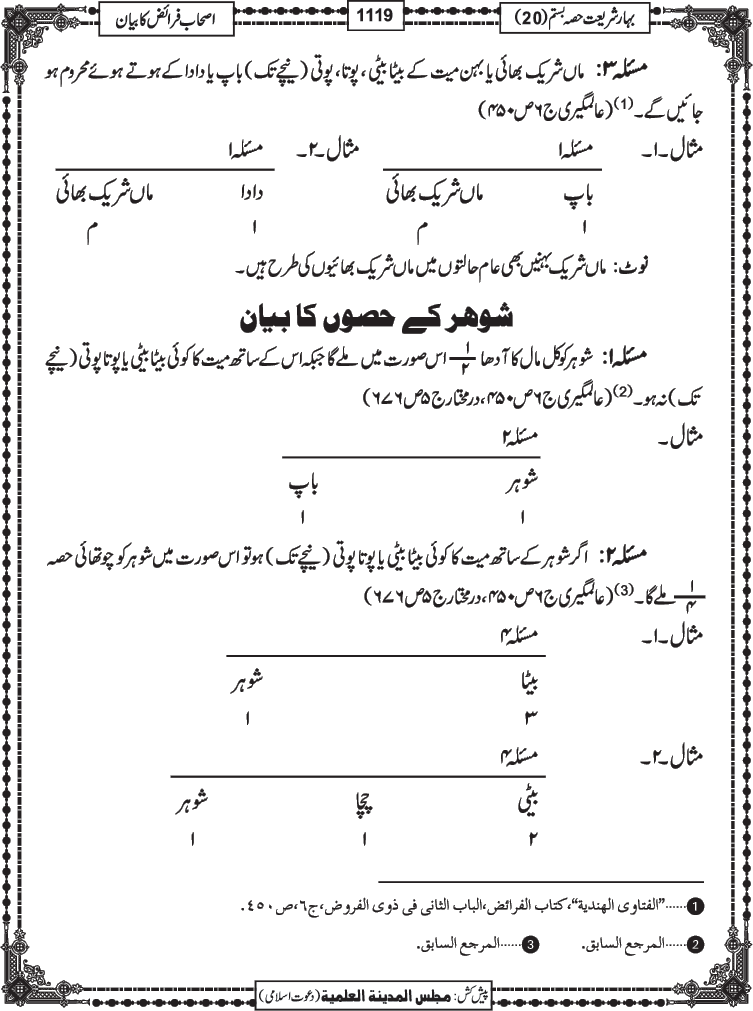 بہار شریعت حصہ بستم (20)
1119
اصحاب فرائض کا بیان
مسئلہ ۳: ماں شریک بھائی یا بہن میت کے بیٹا بیٹی، پوتا، پوتی (نیچے تک) باپ یا دادا کے ہوتے ہوئے محروم ہو
جائیں گے۔(1) (عالمگیری ج۶ ص۴۵۰)
مثال۔۱۔ مسئلہ ۱ مثال۔۲۔ مسئلہ ۱
باپ ماں شریک بھائی دادا ماں شریک بھائی
۱ م ۱ م
نوٹ: ماں شریک بہنیں بھی عام حالتوں میں ماں شریک بھائیوں کی طرح ہیں۔
شوہر کے حصوں کا بیان
مسئلہ ۱: شوہر کو کل مال کا آدھا ۱/۲ اس صورت میں ملے گا جبکہ اس کے ساتھ میت کا کوئی بیٹا بیٹی یا پوتا پوتی (نیچے
تک) نہ ہو۔(2) (عالمگیری ج۶ ص۴۵۰، درمختار ج۵ ص۶۷۶)
مثال۔ مسئلہ ۲
شوہر باپ
۱ ۱
مسئلہ ۲: اگر شوہر کے ساتھ میت کا کوئی بیٹا بیٹی یا پوتا پوتی (نیچے تک) ہو تو اس صورت میں شوہر کو چوتھائی حصہ
۱/۴ ملے گا۔(3) (عالمگیری ج۶ ص۴۵۰، درمختار ج۵ ص۶۷۶)
مثال۔۱۔ مسئلہ ۴
بیٹا شوہر
۳ ۱
مثال۔۲۔ مسئلہ ۴
بیٹی چچا شوہر
۲ ۱ ۱
1......"الفتاوی الهندیة"، کتاب الفرائض، الباب الثانی فی ذوی الفروض، ج۶، ص۴۵۰.
2......المرجع السابق. 3......المرجع السابق.
پیش کش: مجلس المدینة العلمیة (دعوت اسلامی)